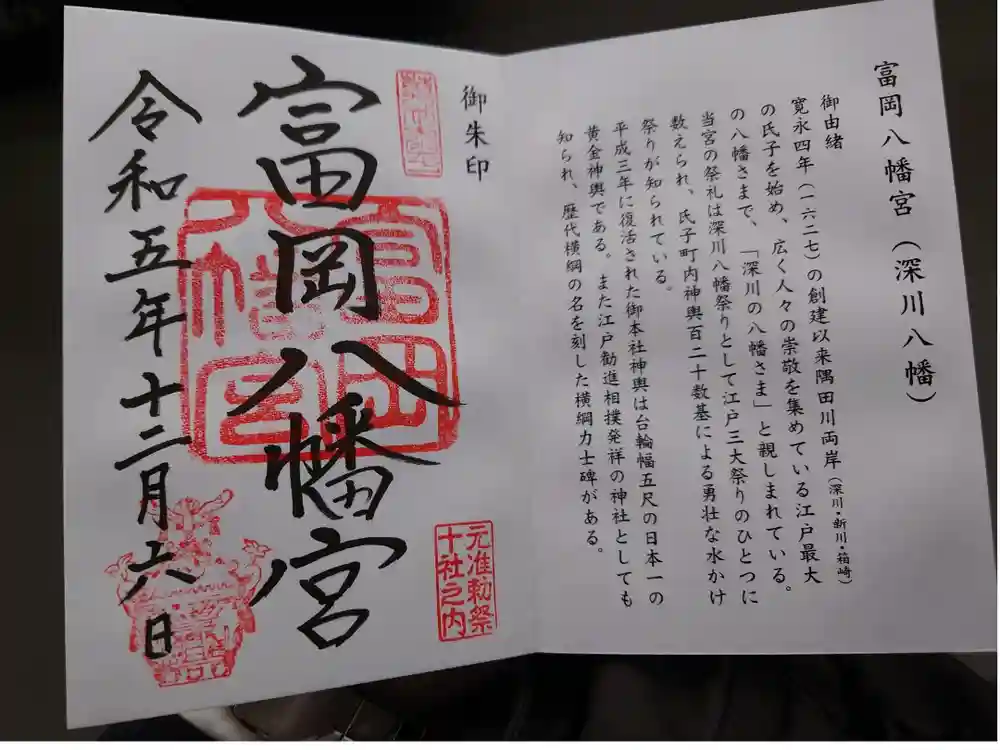 富岡八幡宮（深川八幡）
御由緒
寛永四年（一六二七）の創建以来隅田川両岸（深川・新川・箱崎）
の氏子を始め、広く人々の崇敬を集めている江戸最大
の八幡さまで、「深川の八幡さま」と親しまれている。
当宮の祭礼は深川八幡祭りとして江戸三大祭りのひとつに
数えられ、氏子町内神輿百二十数基による勇壮な水かけ
祭りが知られている。
平成三年に復活された御本社神輿は台輪幅五尺の日本一の
黄金神輿である。また江戸勧進相撲発祥の神社としても
知られ、歴代横綱の名を刻した横綱力士碑がある。
御朱印
元准勅祭
十社之内
富岡八幡宮
富岡
八幡宮
令和五年十二月六日